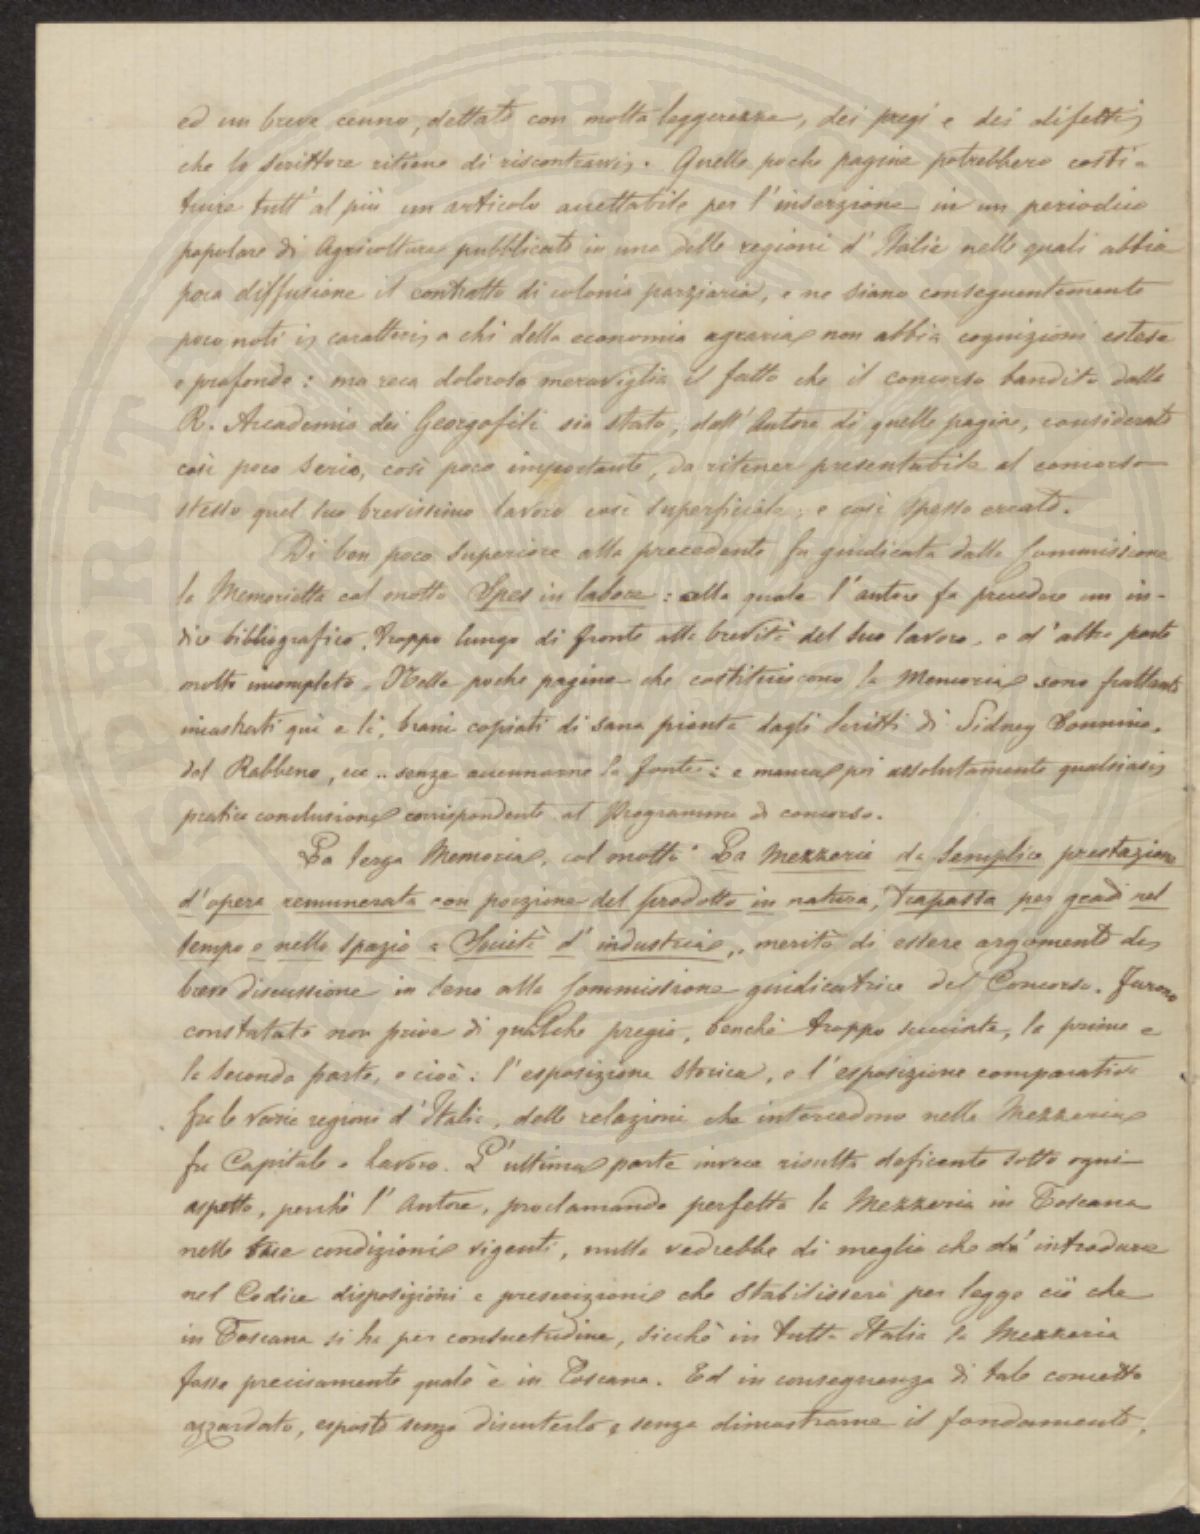 ed un breve cenno, dettato con molta leggerezza, dei pregi e dei difetti
che lo Scrittore ritiene di riscontrarvi. Quelle poche pagine potrebbero costi-
tuire tutt'al più un articolo accettabile per l'inserzione in un periodico
popolare di Agricoltura pubblicato in una delle regioni d'Italia nelle quali abbia
poca diffusione il contratto di colonia parziaria, e ne siano conseguentemente
poco noti i caratteri, a chi della economia agraria non abbia cognizioni estese
e profonde: ma reca dolorosa meraviglia il fatto che il concorso bandito dalla
R. Accademia dei Georgofili sia stato, dall'Autore di quelle pagine, considerato
così poco serio, così poco importante, da ritener presentabile al concorso
stesso quel suo brevissimo lavoro così superficiale, e così spesso errato.
Di ben poco superiore alla precedente fu giudicata dalla Commissione
la Memorietta col motto Spes in labore: alla quale l'autore fa precedere un in-
dice bibliografico, troppo lungo di fronte alla brevità del suo lavoro, e d'altra parte
molto incompleto. Nelle poche pagine che costituiscono la Memoria sono frattanto
incastrati qui e lì, brani copiati di sana pianta dagli Scritti di Sidney Sonnino,
del Rabbeno, ecc.. senza accennarne la fonte: e manca poi assolutamente qualsiasi
pratica conclusione corrispondente al Programma di concorso.
La terza Memoria, col motto "La Mezzeria da semplice prestazione
d'opera remunerata con porzione del prodotto in natura, trapassa per gradi nel
tempo e nello spazio a Società d'industria,, meritò di essere argomento di
breve discussione in seno alla Commissione giudicatrice del Concorso. Furono
constatate non prive di qualche pregio, benchè troppo succinte, la prima e
la seconda parte, e cioè: l'esposizione storica, e l'esposizione comparativa
fra le varie regioni d'Italia, delle relazioni che intercedono nella Mezzeria
fra Capitale e Lavoro. L'ultima parte invece risulta deficente sotto ogni
aspetto, perchè l'Autore, proclamando perfetta la Mezzeria in Toscana
nelle condizioni vigenti, nulla vedrebbe di meglio che d'introdurre
nel Codice disposizioni e prescrizioni che stabilissero per legge ciò che
in Toscana si ha per consuetudine, sicchè in tutta Italia la Mezzeria
fosse precisamente quale è in Toscana. Ed in conseguenza di tale concetto
azzardato, esposto senza discuterlo e senza dimostrarne il fondamento,